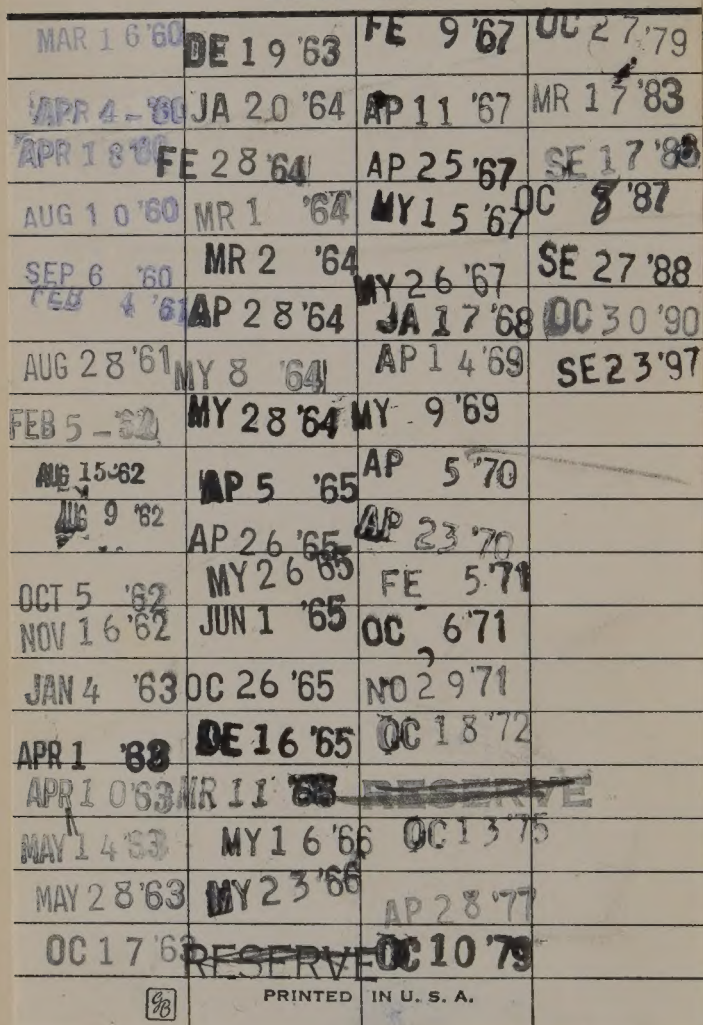 MAR 16 '60
APR 4 - '60
APR 18 '60
AUG 10 '60
SEP 6 '60
FEB 4 '61
AUG 28 '61
FEB 5 - '62
AUG 15 '62
AUG 9 '62
OCT 5 '62
NOV 16 '62
JAN 4 '63
APR 1 '63
APR 10 '63
MAY 14 '63
MAY 28 '63
OC 17 '63
DE 19 '63
JA 20 '64
FE 28 '64
MR 1 '64
MR 2 '64
AP 28 '64
MY 8 '64
MY 28 '64
AP 5 '65
AP 26 '65
MY 26 '65
JUN 1 '65
OC 26 '65
DE 16 '65
MR 11 '66
MY 16 '66
MY 23 '66
RESERVE
FE 9 '67
AP 11 '67
AP 25 '67
MY 15 '67
MY 26 '67
JA 17 '68
AP 14 '69
MY 9 '69
AP 5 '70
AP 23 '70
FE 5 '71
OC 6 '71
NO 29 '71
OC 18 '72
RESERVE
OC 13 '75
AP 28 '77
OC 10 '79
OC 27 '79
MR 17 '83
SE 17 '86
OC 8 '87
SE 27 '88
OC 30 '90
SE 23 '97
GB
PRINTED IN U. S. A.